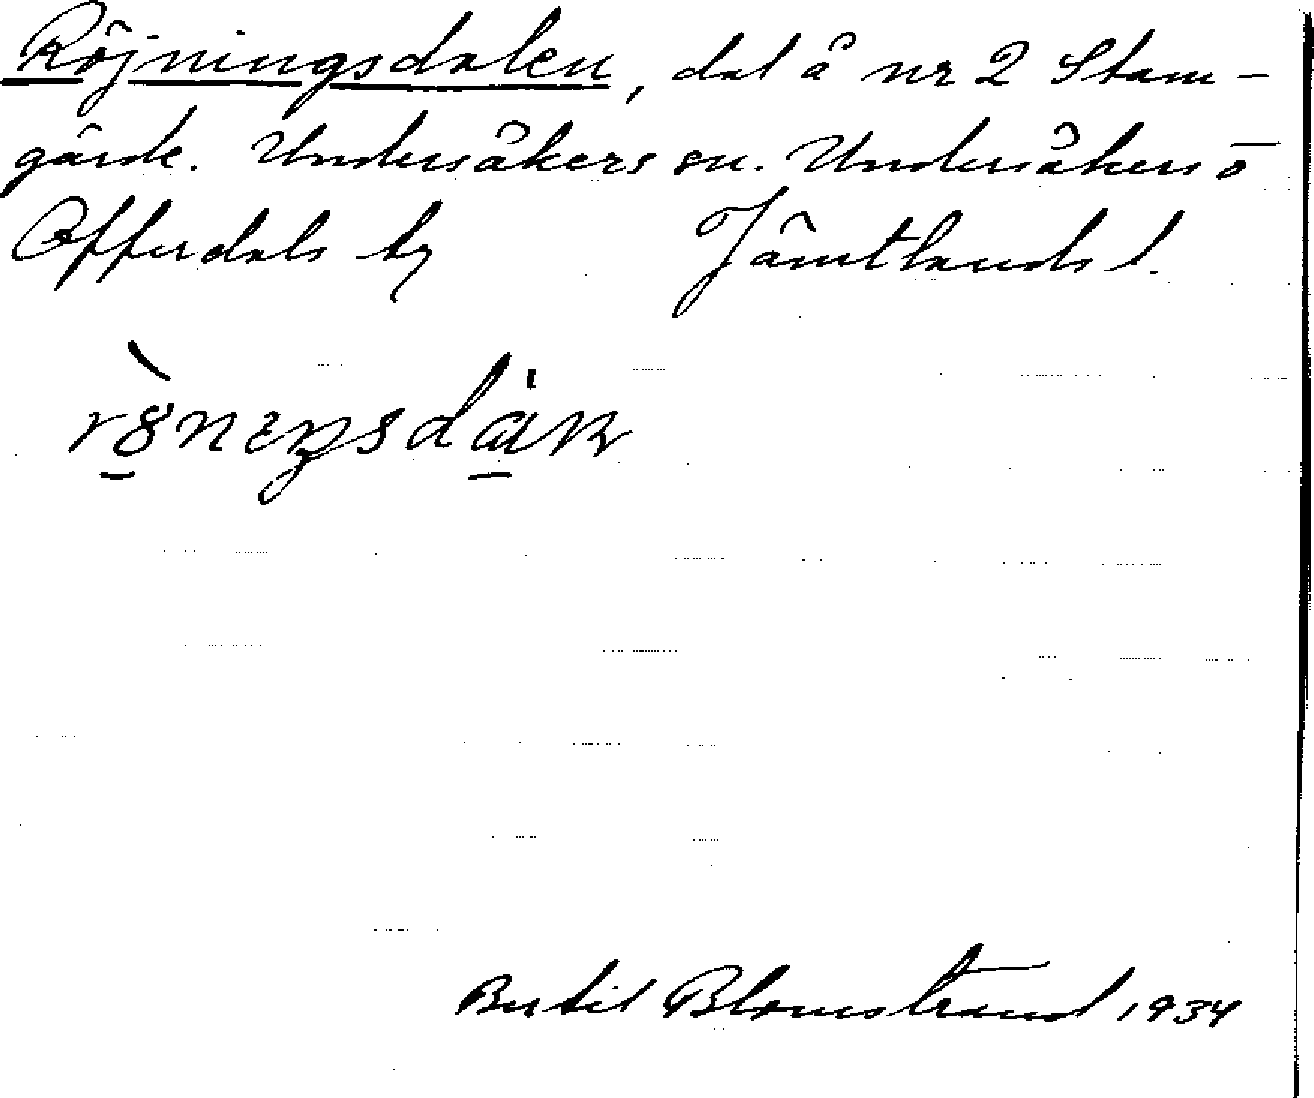 Röjningsdalen, dal å nr 2 Stam-
gärde. Undersåkers sn. Undersåkers o
Offerdals tg Jämtlands l.
Bertil Blomstrand 1934